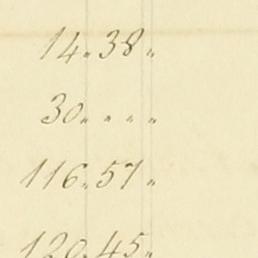 14. 38 "
30. " " "
116. 57 "
120. 45 "